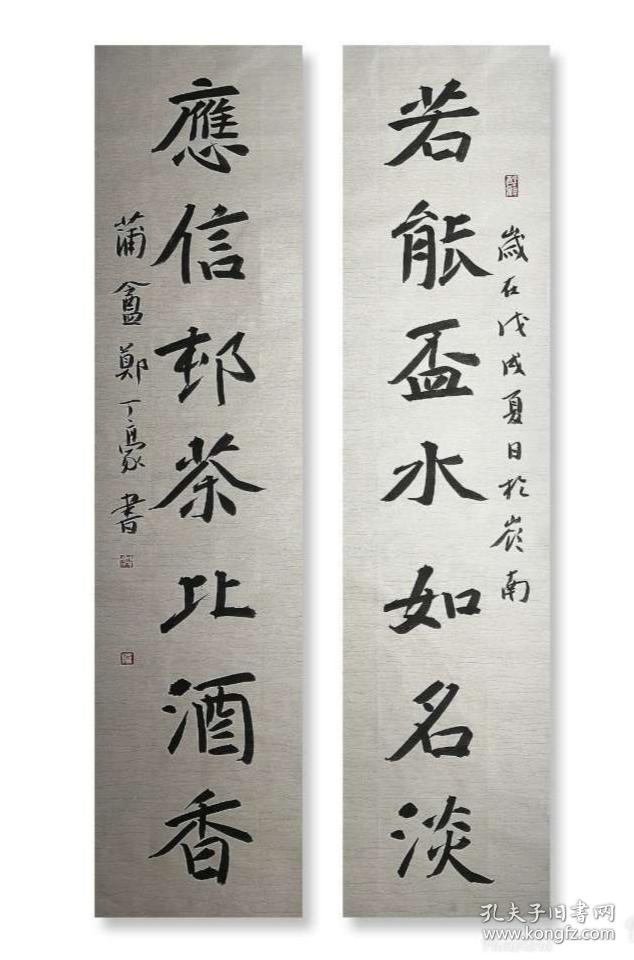 若能盃水如名淡
歲在戊戌夏日於嶺南
應信邨茶比酒香
蒲盦鄭丁豪書
孔夫子旧书网
www.kongfz.com